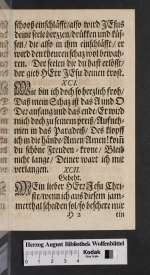 schooß einschläfft/also wird JEsus
deine seele herzen/drücken und küs-
sen/die also in ihm einschläfft/er
wird den theuren schatz wol bewah-
ren. Der seelen die du hast erlöst/
der gieb HErr JEsu deinen trost.
XCI.
Wie bin ich doch so herzlich froh/
Daß mein Schatz ist das A und O
Der anfang und das ende Er wird
mich doch zu seinem preiß/Auffneh-
men in das Paradeiß/Des klopff
ich in die hände/Amen Amen/kom
du schöne Freuden-krone/bleib
nicht lange/Deiner wart ich mit
verlangen. XCII.
Gebeht.
MEin lieber HErr JEsu Chri-
ste/wenn ich aus diesem jam-
merthal scheiden sol so beschere mir
H 2 ein
Herzog August Bibliothek Wolfenbüttel